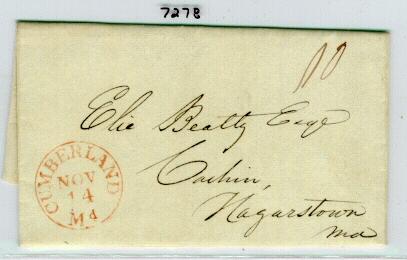 7278
10
Elie Beatty Esqr
Cashier,
Hagarstown
Md
CUMBERLAND
NOV
14
Md